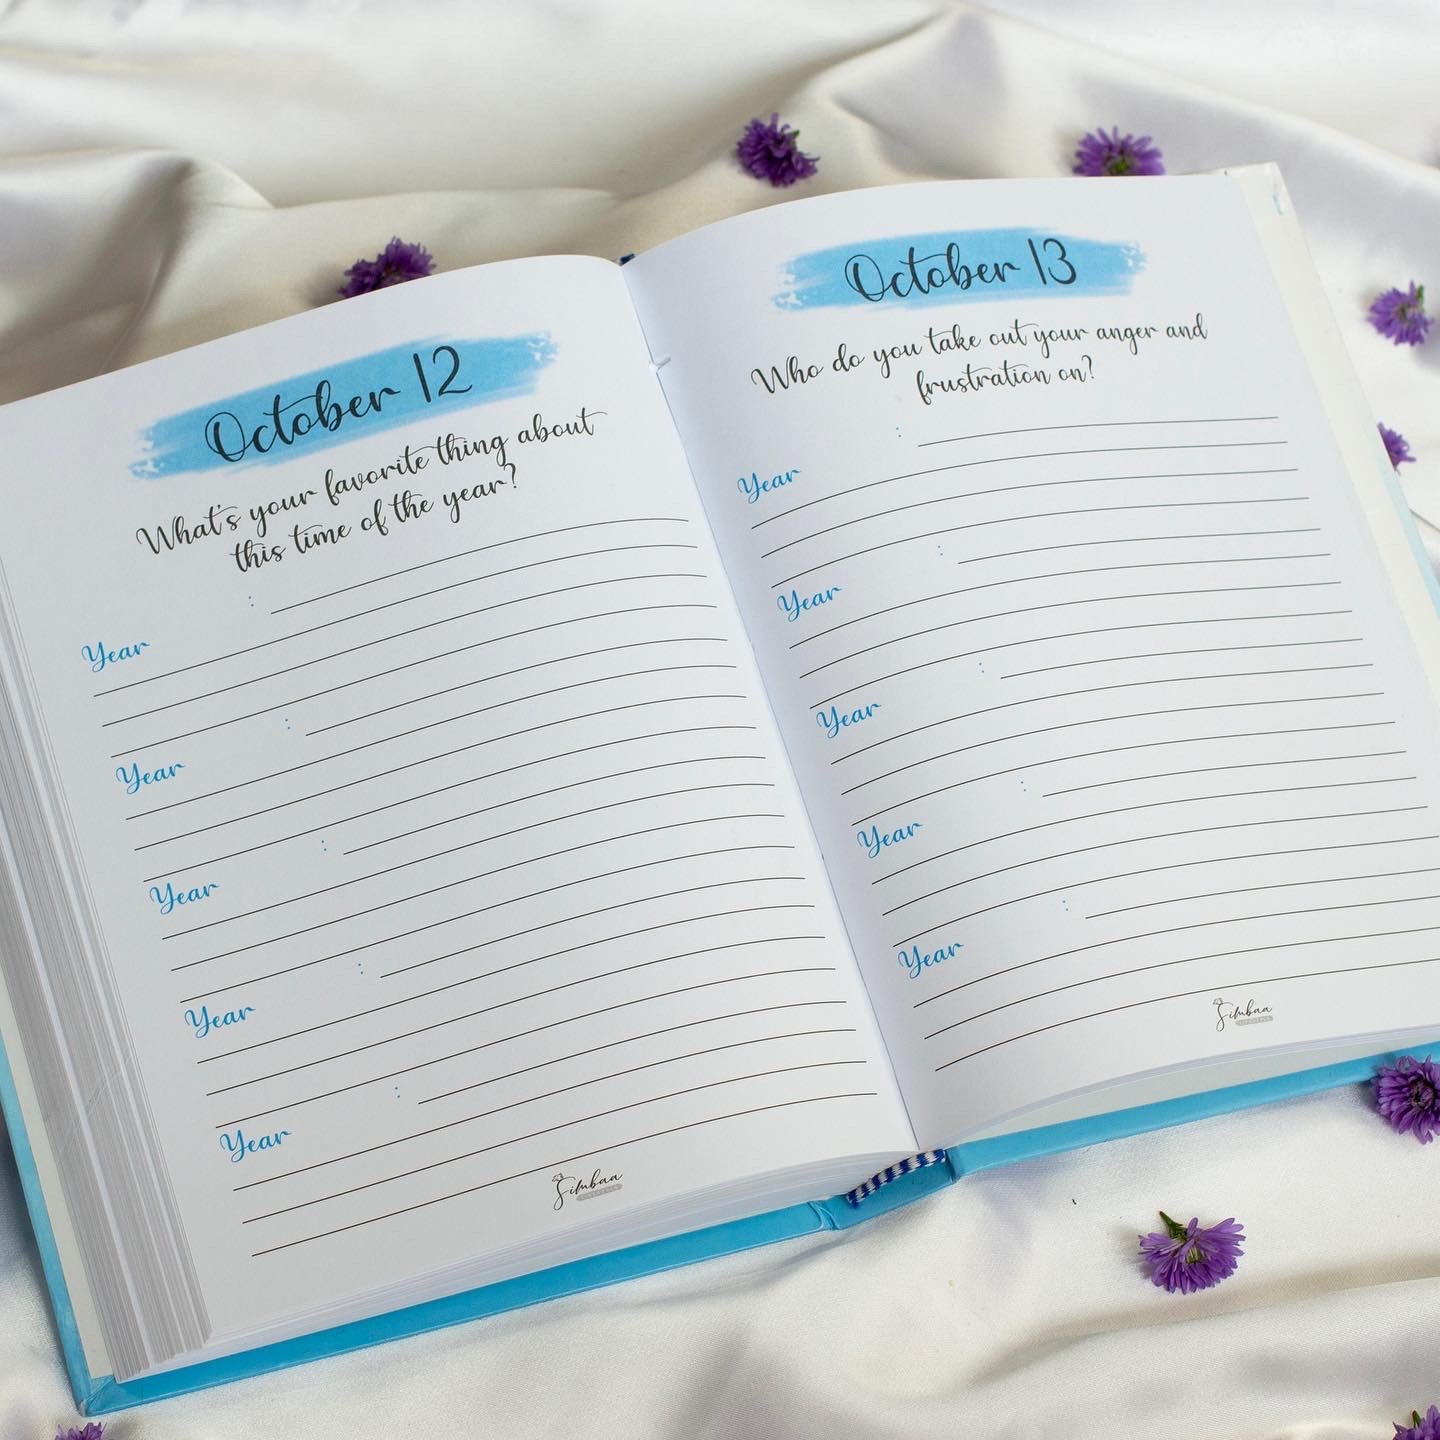 October 12
What's your favorite thing about
this time of the year?
:
Year
:
Year
:
Year
:
Year
:
Year
Simbaa
LIFESTYLE
October 13
Who do you take out your anger and
frustration on?
:
Year
:
Year
:
Year
:
Year
:
Year
Simbaa
LIFESTYLE